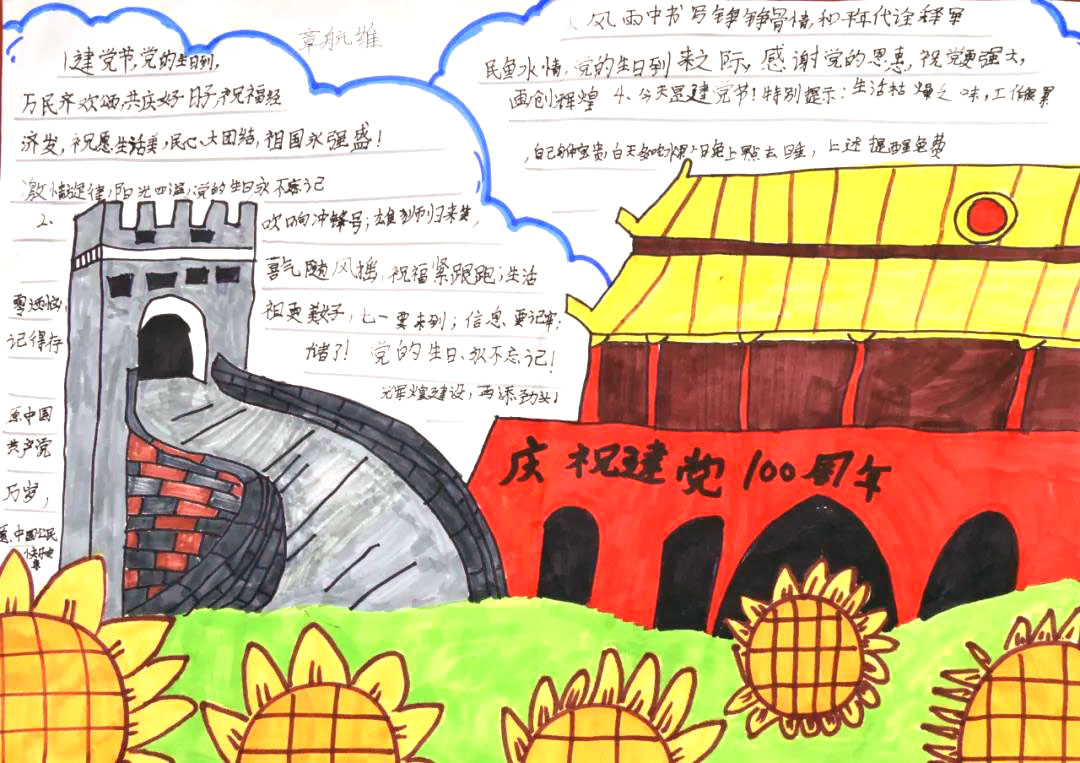 章航维
1.建党节,党的生日到,
万民齐欢颂,共庆好日子,祝福经
济发,祝愿生活美,民心大团结,祖国永强盛!
激情旋律,阳光四溢,党的生日永不忘记
2、
吹响冲锋号;雄狮归来笑,
喜气随风摇,祝福紧跟跑;生活
祖更美好,七一要来到;信息要记牢;
储了! 党的生日、永不忘记!
辉煌建设,再添劲头!
零烦恼,
记得存
愿中国
共产党
万岁,
愿中国公民
快乐安
康
风雨中书写铮铮骨情,和平年代诠释军
民鱼水情,党的生日到来之际,感谢党的恩惠,祝党更强大,
再创辉煌 4、今天是建党节!特别提示:生活枯燥乏味,工作最累
,自己身体宝贵,白天多吃水果,晚上早点去睡,上述提醒免费
庆祝建党100周年